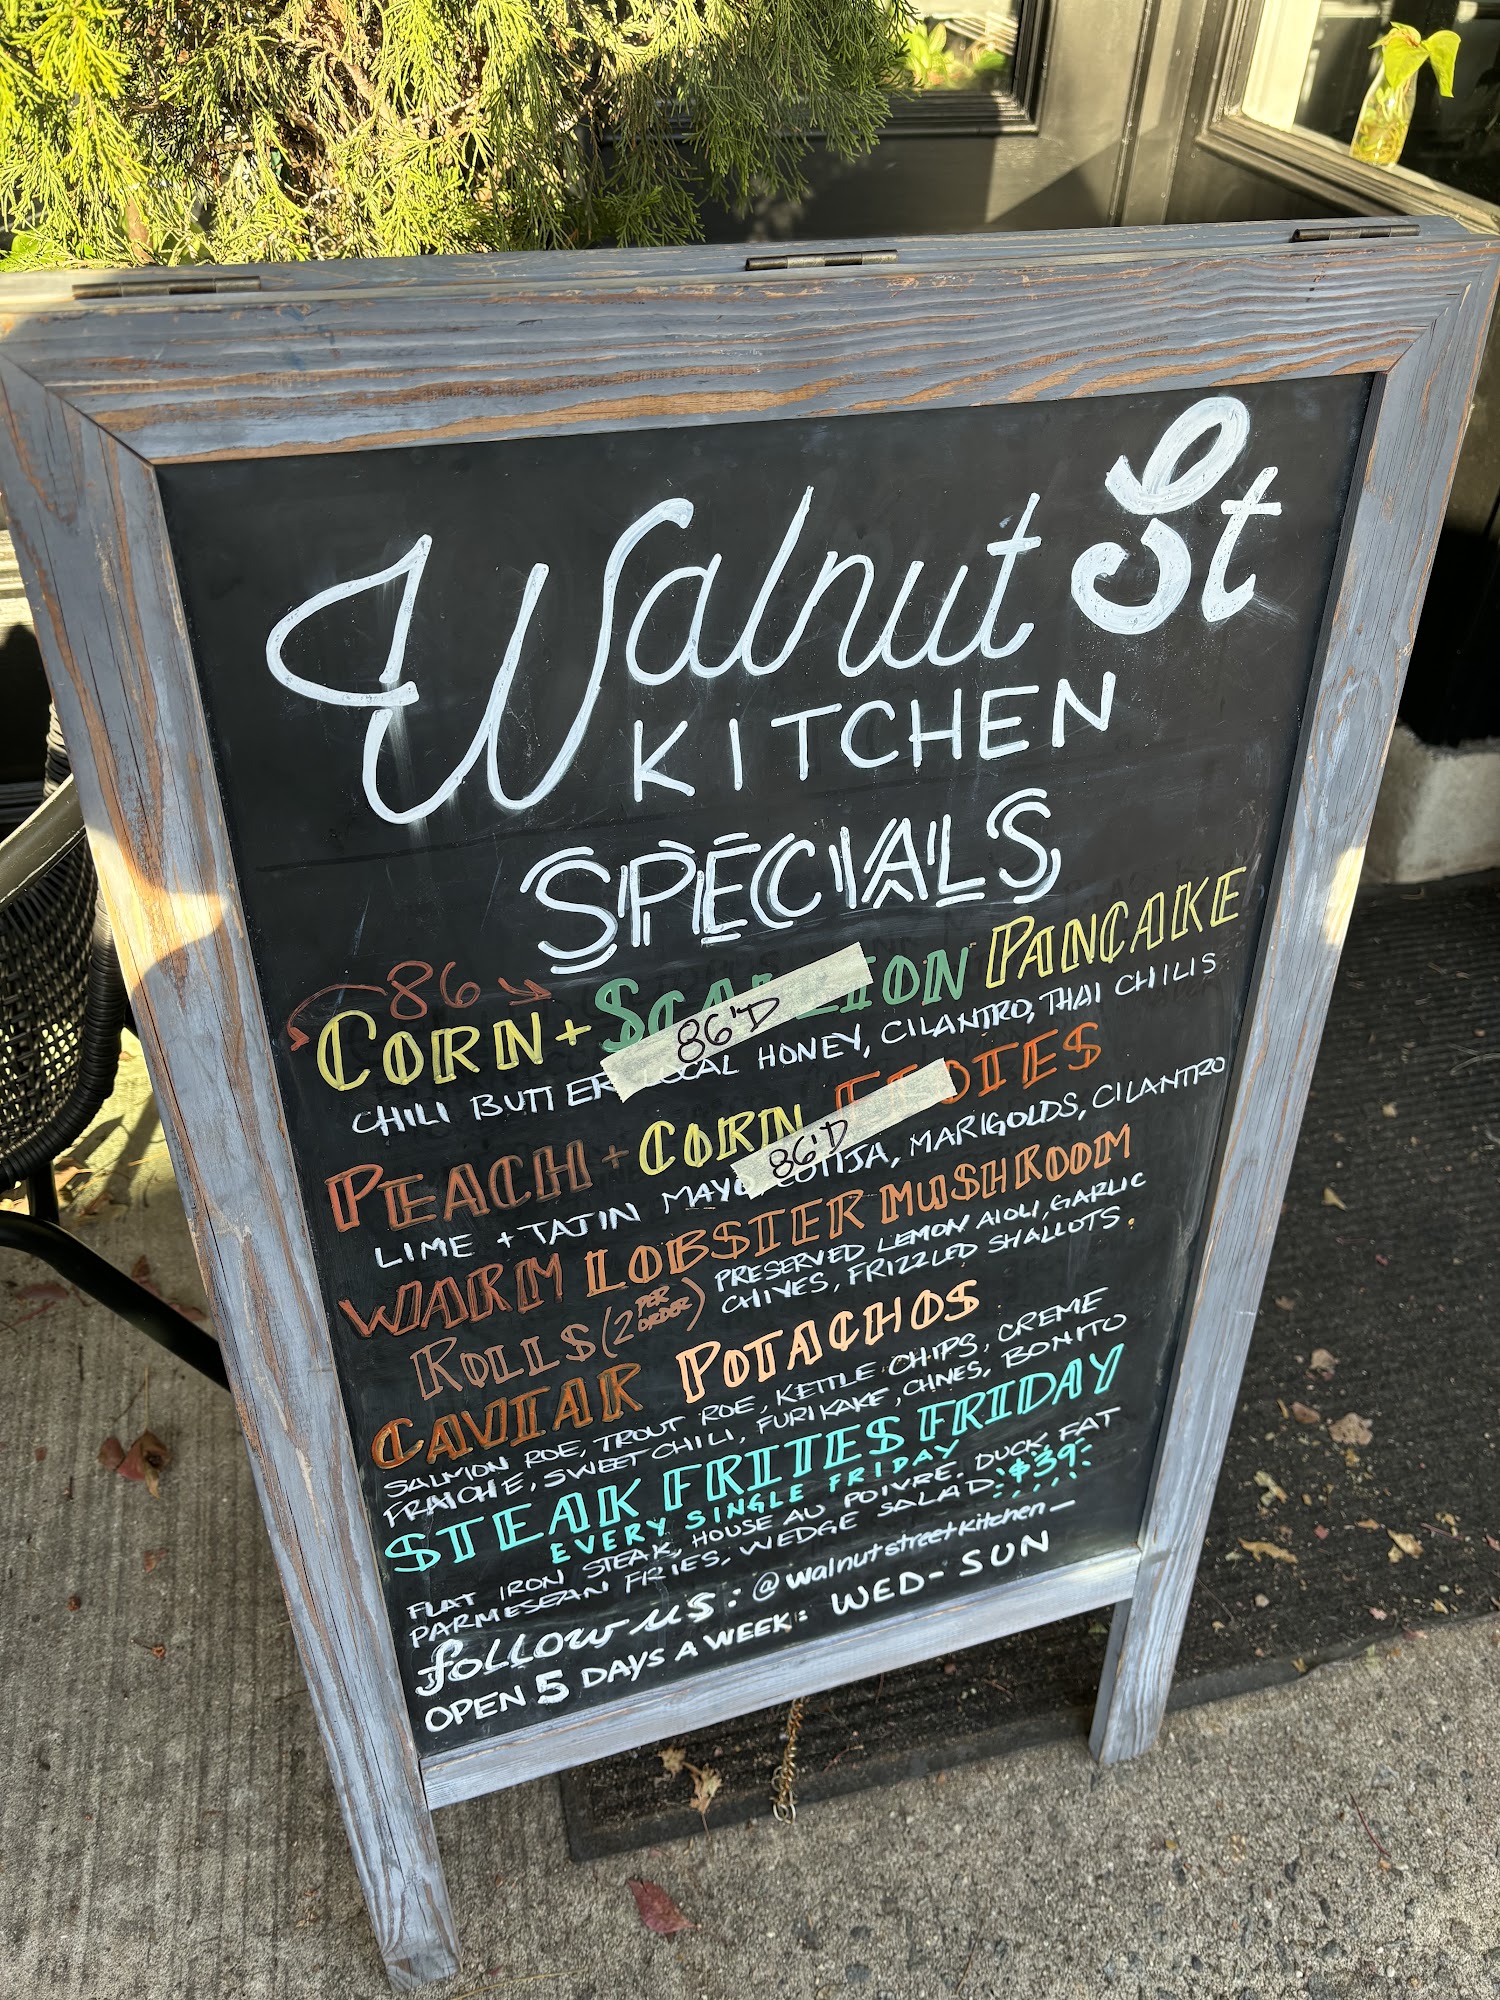 Walnut St
KITCHEN
SPECIALS
86
CORN + SCALLION PANCAKE
86'D
CHILI BUTTER, LOCAL HONEY, CILANTRO, THAI CHILIS
PEACH + CORN ELOTES
86'D
LIME + TAJIN MAYO, COTIJA, MARIGOLDS, CILANTRO
WARM LOBSTER MUSHROOM
ROLLS (2 PER ORDER)
PRESERVED LEMON AIOLI, GARLIC
CHIVES, FRIZZLED SHALLOTS.
CAVIAR POTACHOS
SALMON ROE, TROUT ROE, KETTLE CHIPS, CREME
FRAICHE, SWEET CHILI, FURIKAKE, CHIVES, BONITO
STEAK FRITES FRIDAY
EVERY SINGLE FRIDAY
FLAT IRON STEAK, HOUSE AU POIVRE. DUCK FAT
PARMESEAN FRIES, WEDGE SALAD $39
follow us: @walnutstreetkitchen
OPEN 5 DAYS A WEEK: WED-SUN